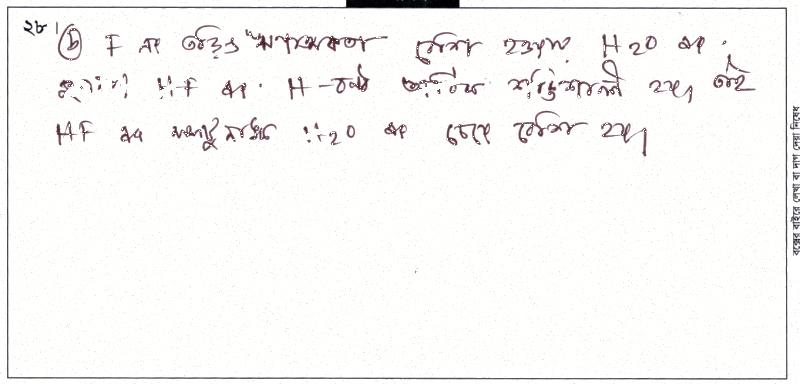 ২৮। (b) F এর তড়িৎ ঋণাত্মকতা বেশি হওয়ায় H2O এর
তুলনায় H-F এর H-বন্ড অধিক শক্তিশালী হয়। তাই
HF এর স্ফুটনাঙ্ক H2O এর চেয়ে বেশি হয়।
বক্সের বাইরে লেখা বা দাগ দেয়া নিষেধ